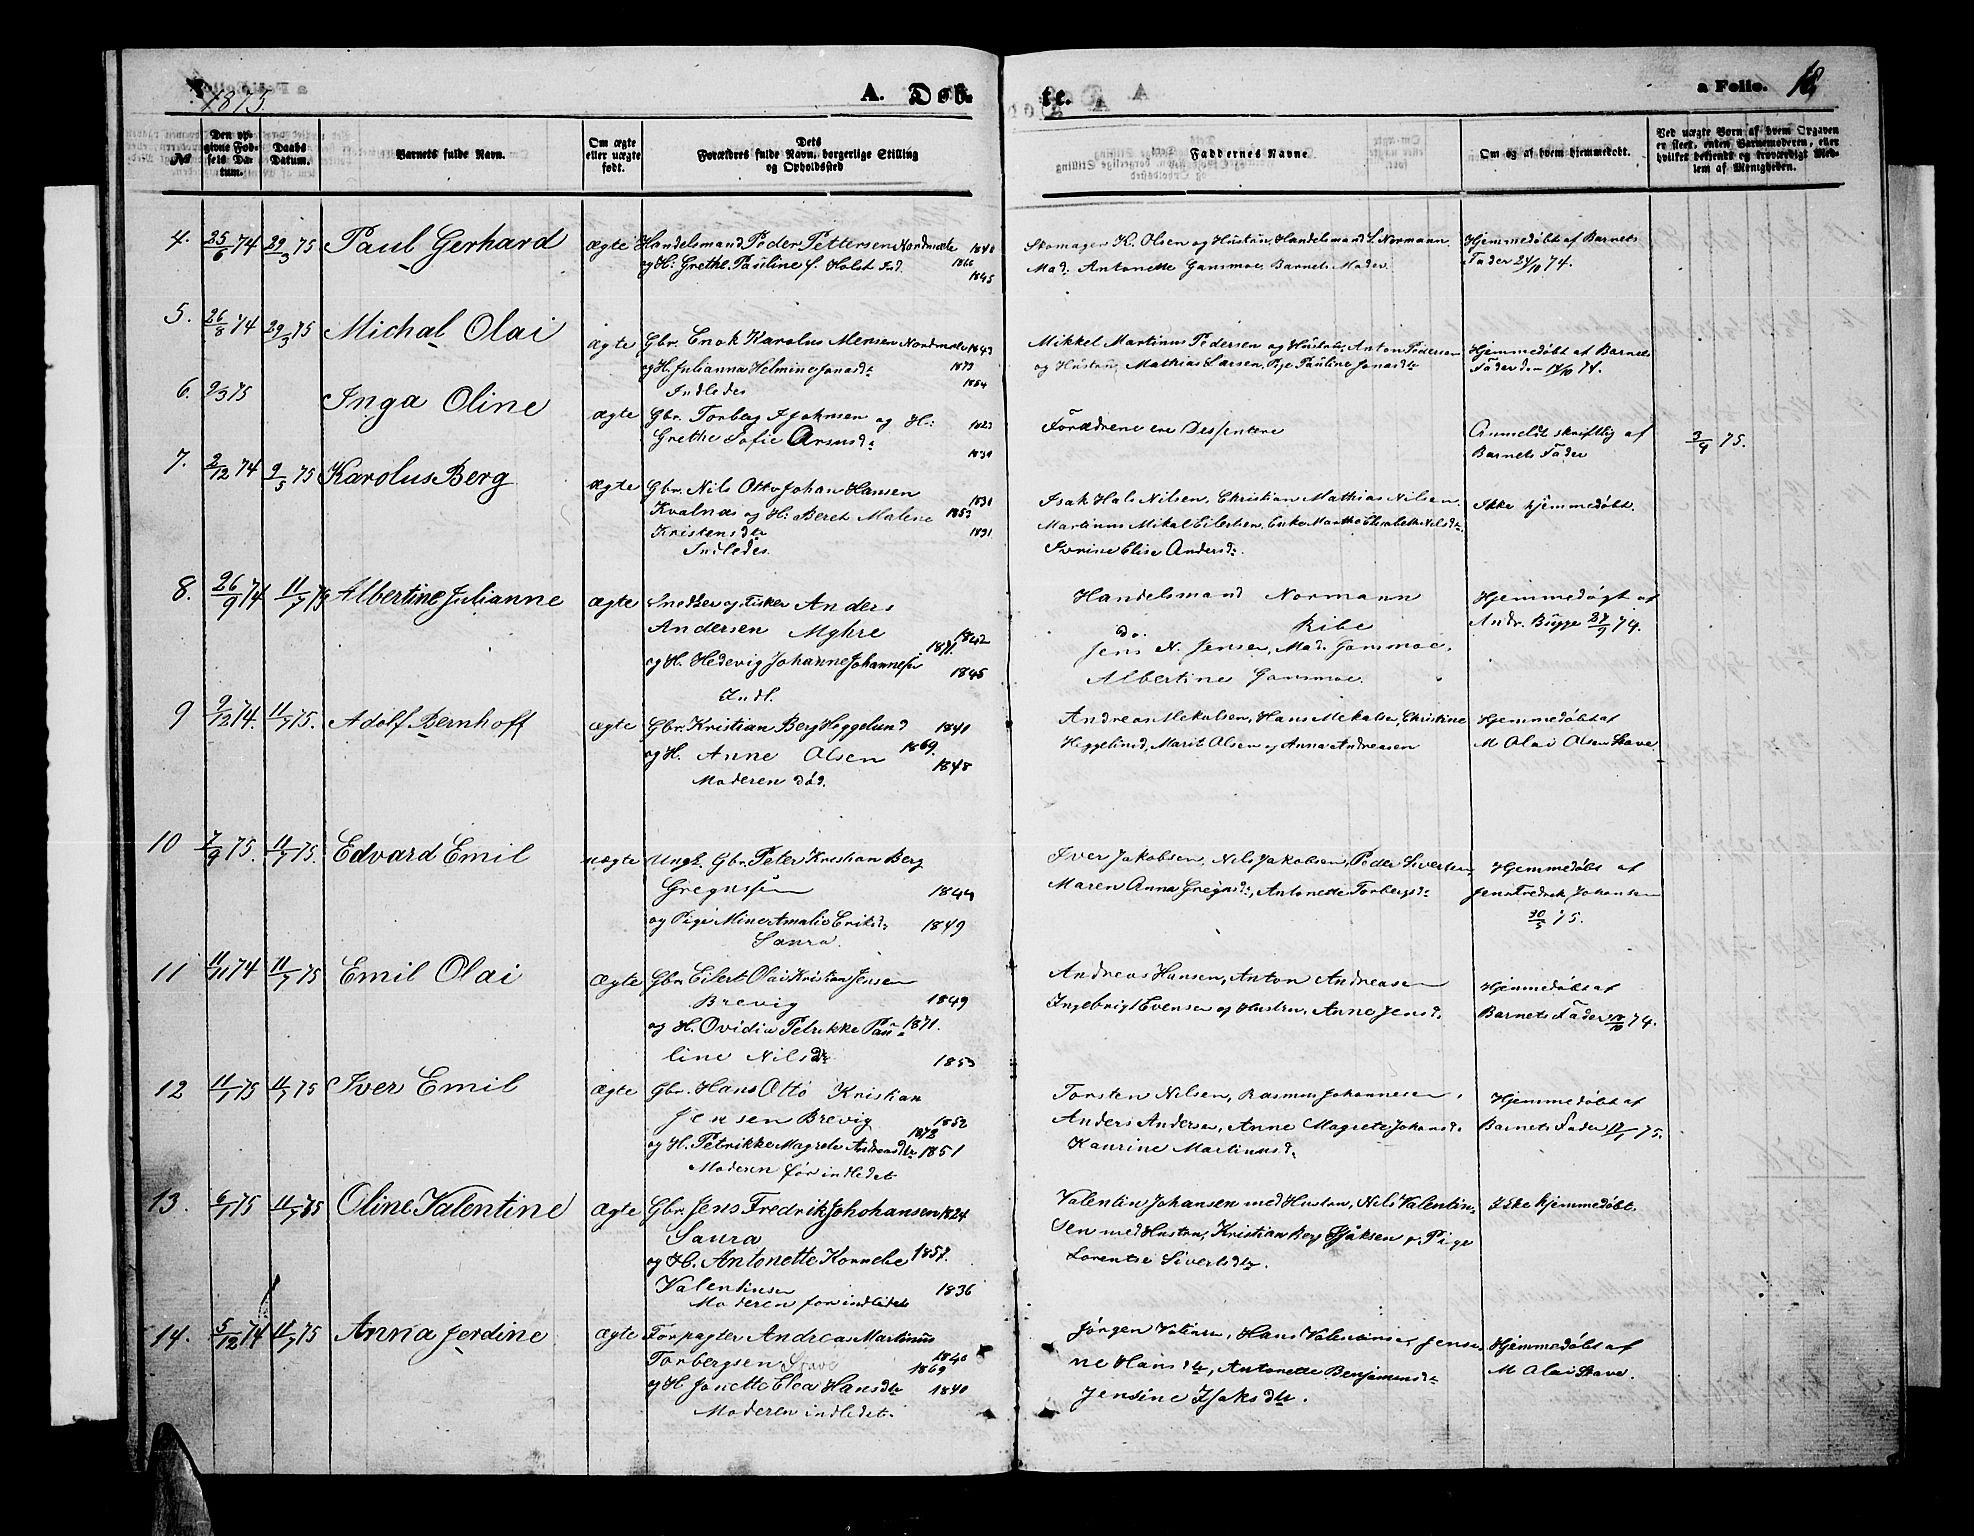 1875.
A. Døb-
te.
a Folio. 12
No
Den op-
givne Fød-
sels Da-
tum.
Daabs
Datum.
Barnets fulde Navn.
Om ægte
eller uægte
født.
Dets
Forældres fulde Navn, borgerlige Stilling
og Opholdssted
Faddernes Navne.
Om og af hvem hjemmedøbt.
Ved uægte Børn af hvem Opgaven
er skeet, enten Barnemoderen, eller
hvilket bekjendt og troværdigt Med-
lem af Menigheden.
4. 25/6 74 29/3 75 Paul Gerhard ægte Handelsmand Peder Pettersen Nordmæle 1840
og H: Grethe Pauline S. Holst Ind. 1866
1845
Skomager H. Olsen og Hustru, Handelsmand S. Normann
Mad. Antonette Gansmoe, Barnets Moder.
Hjemmedøbt af Barnets
Fader 24/10 74.
5. 26/8 74 29/3 75 Michal Olai ægte Gbr. Enok Karolus Mensen Nordmæle 1843
og H. Julianna Helmine Jonasdtr 1873
Indledes 1854
Mikkel Martinus Pedersen og Hustru, Anton Pedersen
og Hustru, Mathias Larsen, Pige Pauline Jonasdtr
Hjemmedøbt af Barnets
Fader den 18/10 74.
6. 2/3 75 Inga Oline ægte Gbr. Torberg A Johnsen og H: 1823
Grethe Sofie Arnsdr 1839
Forældrene ere Dessentere
Anmeldt skriftlig af
Barnets Fader
3/4 75.
7. 2/12 74 9/5 75 Karolus Berg ægte Gbr. Nils Otto Johan Hansen
Kvalnæs og H: Beret Malene 1853 1831
Kristensdtr 1831
Indledes.
Isak Hals Nilsen, Christian Mathias Nilsen
Martinus Mikal Eilertsen, Enke Martha Elisabeth Nilsdtr
Ivrine Elise Andersdr.
Ikke hjemmedøbt.
8. 26/9 74 11/7 75 Albertine Julianne ægte Snedker og Fisker Anders
Andersen Myhre 1842
og H. Hedevig Johanne Johannesen 1871. 1845
Indl.
Handelsmand Normann
do. Ribe
Jens N. Jensen, Mad. Gansmoe,
Albertine Gansmoe.
Hjemmedøgt af
Andr. Bugge 27/9 74.
9 9/12 74. 11/7 75. Adolf Bernhoff ægte Gbr. Kristian Berg Heggelund 1841
og H. Anne Olsen 1869. 1848
Moderen død.
Andreas Mekalsen, Hans Mekalsen, Christine
Heggelund, Marit Olsen og Anna Andreasen
Hjemmedøbt af
M Olai Olsen Stave.
10 7/4 75. 11/7 75. Edvard Emil uægte Ungk. Gbr. Peter Kristian Berg
Gregussen 1844
og Pige Mine Amalie Eriksdr 1849
Saura.
Iver Jakobsen, Nils Jakobsen, Peder Sivertsen
Maren Anna Gregusdr, Antonette Torbergsdr
Hjemmedøbt af
Jens Fredrik Johansen
30/5 75.
11 11/11 74 11/7 75 Emil Olai ægte Gbr. Eilert Olai Kristian Jensen
Brevig 1849
og H. Ovidia Petrikke Pau- 1871.
line Nilsdr 1853
Andreas Hansen, Anton Andreasen
Ingebrigt Evensen og Hustru, Anne Jensdr
Hjemmedøbt af
Barnets Fader 74.
12 11/1 75 11/7 75 Iver Emil ægte Gbr. Hans Otto Kristian
Jensen Brevig 1852
1872
og H. Petrikke Magrete Andreasdtr 1851
Moderen før indledet
Torsten Nilsen, Rasmus Johannesen,
Anders Andersen, Anne Magrete Johansdr
Kaurine Martinusdr
Hjemmedøbt af
Barnets Fader 17/1 75.
13. 6/1 75 11/7 75 Oline Valentine ægte Gbr. Jens Fredrik Johohansen 1824
Saura
og H. Antonette Kornelie 1857.
Valentinsen 1836
Moderen før indledet
Valentin Johansen med Hustru, Nils Valentin
sen med Hustru, Kristian Berg Isaksen og Pige
Lorentse Sivertsdtr.
Ikke hjemmedøbt.
14. 5/12 74 11/7 75 Anna Jerdine ægte Forpagter Andreas Martinus
Torbergsen Stave 1840
1869
og H Janette Elea Hansdtr 1840
Moderen indledet.
Jørgen Valtinsen, Hans Valentinsen, Jensi
ne Hansdtr, Antonette Benjaminsdtr
Jensine Isaksdtr.
Hjemmedøbt af
M Olai Stave.